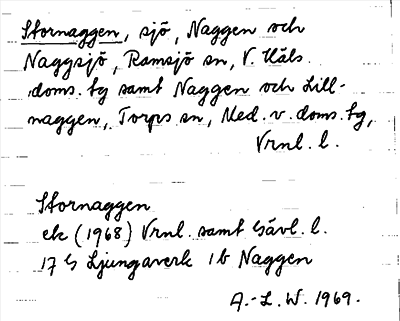 Stornaggen, sjö, Naggen och
Naggsjö, Ramsjö sn, V. Häls.
doms. tg samt Naggen och Lill-
naggen, Torps sn, Med. v. doms. tg,
Vrnl. l.
Stornaggen
ek (1968) Vrnl. samt Gävl. l.
17 G Ljungaverk 1b Naggen
A.-L. W. 1969.